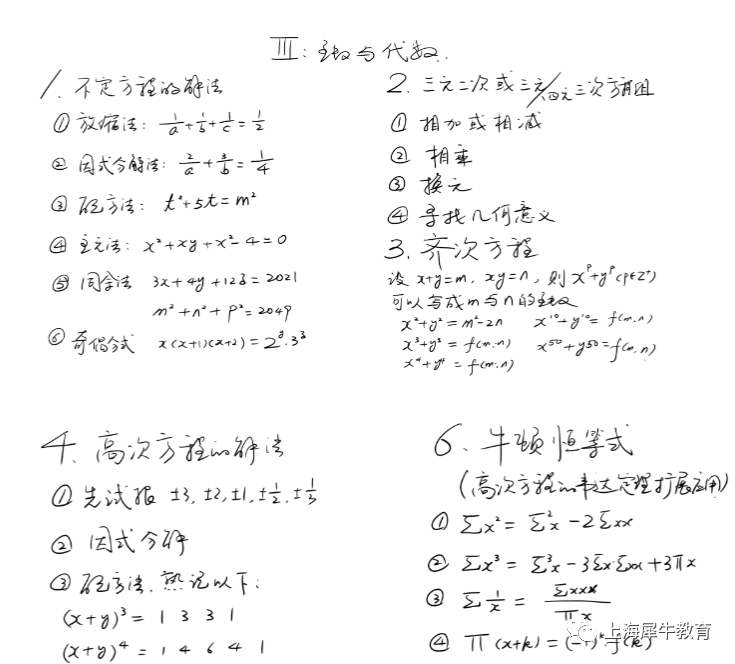 III：函数与代数.
1. 不定方程的解法
① 放缩法: 1/a + 1/b + 1/c = 1/2
② 因式分解法: 2/a + 3/b = 1/4
③ 配方法: t²+5t=m²
④ 主元法: x²+xy+x²-4=0
⑤ 同余法 3x+4y+12z=2021
m²+n²+p²=2049
⑥ 奇偶分式 x(x+1)(x+2)=2^y·3^z
2. 三元二次或三元/四元三次方程组
① 相加或相减
② 相乘
③ 换元
④ 寻找几何意义
3. 齐次方程
设 x+y=m, xy=n, 则 x^p+y^p (p∈Z⁺)
可以写成m与n的函数
x²+y²=m²-2n x¹⁰+y¹⁰=f(m,n)
x³+y³=f(m,n) x⁵⁰+y⁵⁰=f(m,n)
x⁴+y⁴=f(m,n)
4. 高次方程的解法
① 先试根 ±3, ±2, ±1, ±1/2, ±1/3
② 因式分解
③ 配方法, 熟记以下:
(x+y)³ = 1 3 3 1
(x+y)⁴ = 1 4 6 4 1
6. 牛顿恒等式
(高次方程的韦达定理扩展应用)
① Σx² = Σ²x - 2Σxx
② Σx³ = Σ³x - 3ΣxΣxx + 3πx
③ Σ1/x = Σxxx/πx
④ π(x+k) = (-1)^k f(k)
上海犀牛教育